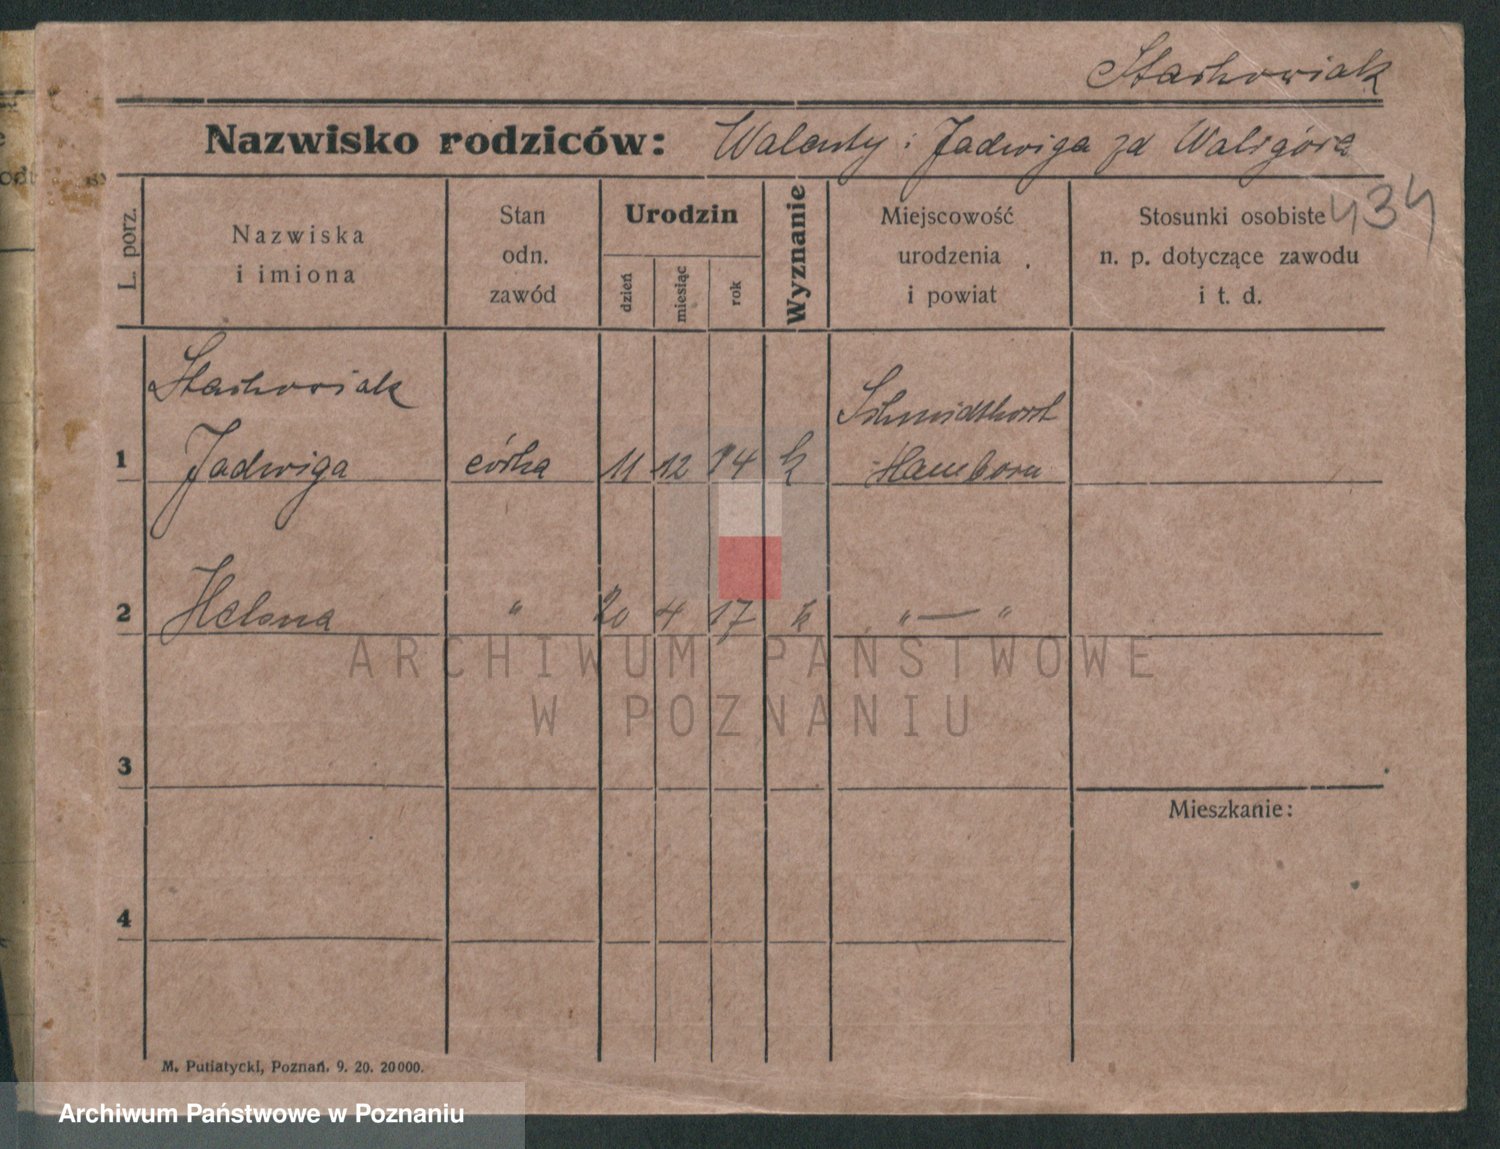 Stachowiak
Nazwisko rodziców: Walenty i Jadwiga zd Walsgóra
434
L. porz.
Nazwiska
i imiona
Stan
odn.
zawód
Urodzin
dzień
miesiąc
rok
Wyznanie
Miejscowość
urodzenia
i powiat
Stosunki osobiste
n. p. dotyczące zawodu
i t. d.
Stachowiak Schmidthorst
1 Jadwiga córka 11 12 14 k Hamborn
2 Helena " 20 4 17 k " — "
3
Mieszkanie:
4
M. Putiatycki, Poznań. 9. 20. 20000.
ARCHIWUM PAŃSTWOWE
W POZNANIU
Archiwum Państwowe w Poznaniu